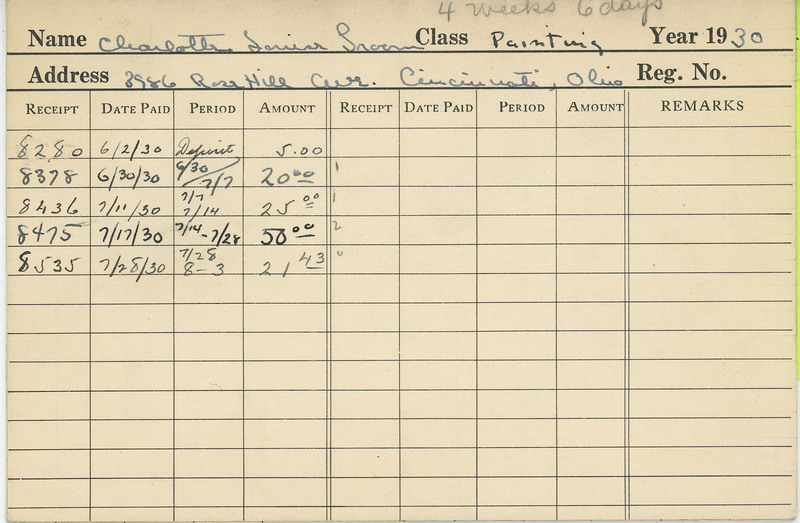 4 weeks 6 days
Name Charlotte Louise Groom Class Painting Year 1930
Address 3986 Rose Hill Ave. Cincinnati, Ohio Reg. No.
RECEIPT DATE PAID PERIOD AMOUNT RECEIPT DATE PAID PERIOD AMOUNT REMARKS
8280 6/2/30 Deposit 5.00
8378 6/30/30 6/30/7/7 20 00 1
8436 7/11/30 7/7 7/14 25 00 1
8475 7/17/30 7/14-7/28 50 00 2
8535 7/28/30 7/28 8-3 21 43